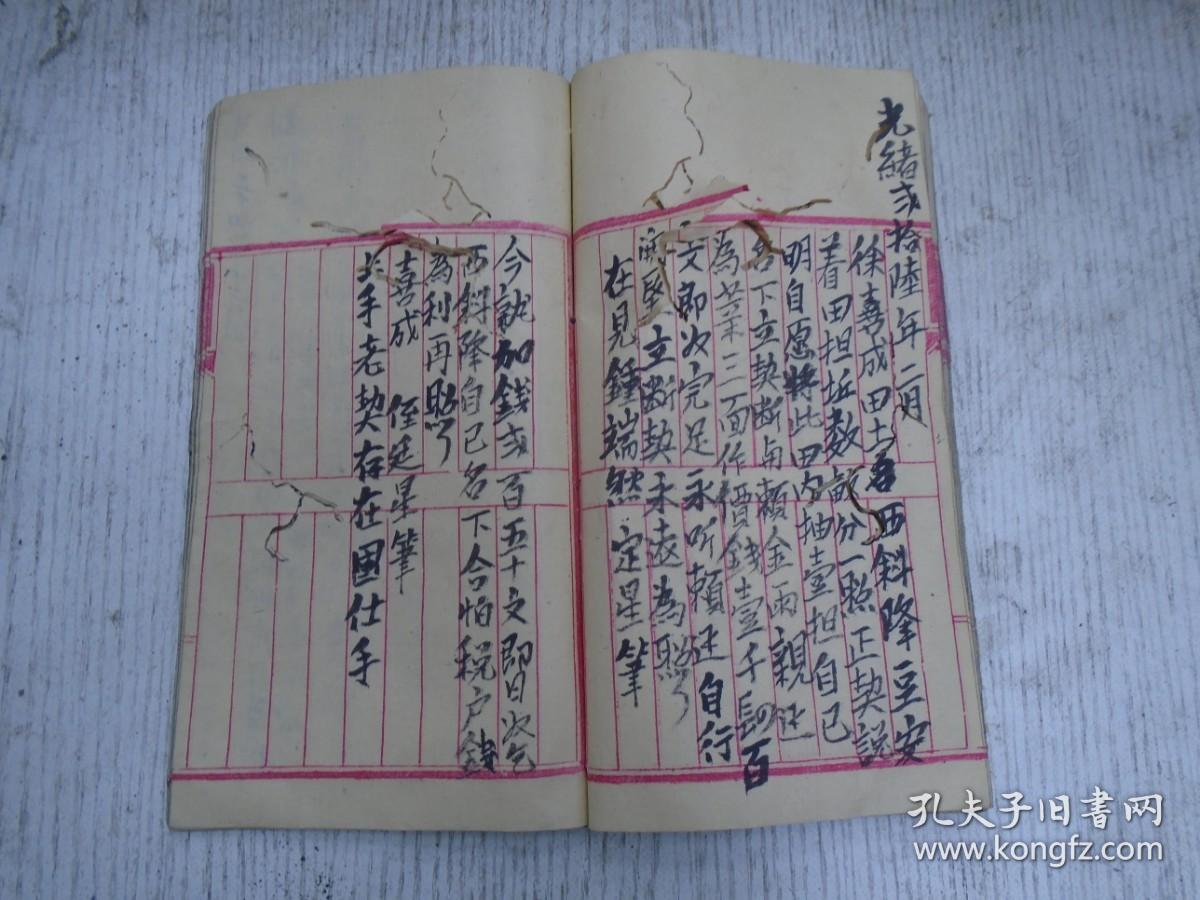 光緒弍拾陸年二月
徐喜成田土名西斜隆豆安
着田担坵数畝分一照正契説
明自愿將此田内抽壹担自己
名下立契断与賴金雨親边
為業三面作價錢壹千四百
文即收完足永听賴边自行
立断契永遠為照了
在見鍾端然 定星筆
今就加錢弍百五十文即日收乞
西斜隆自己名下合怕税户錢
為利再照了
喜成 侄廷星筆
上手老契存在國仕手
孔夫子旧书网
www.kongfz.com